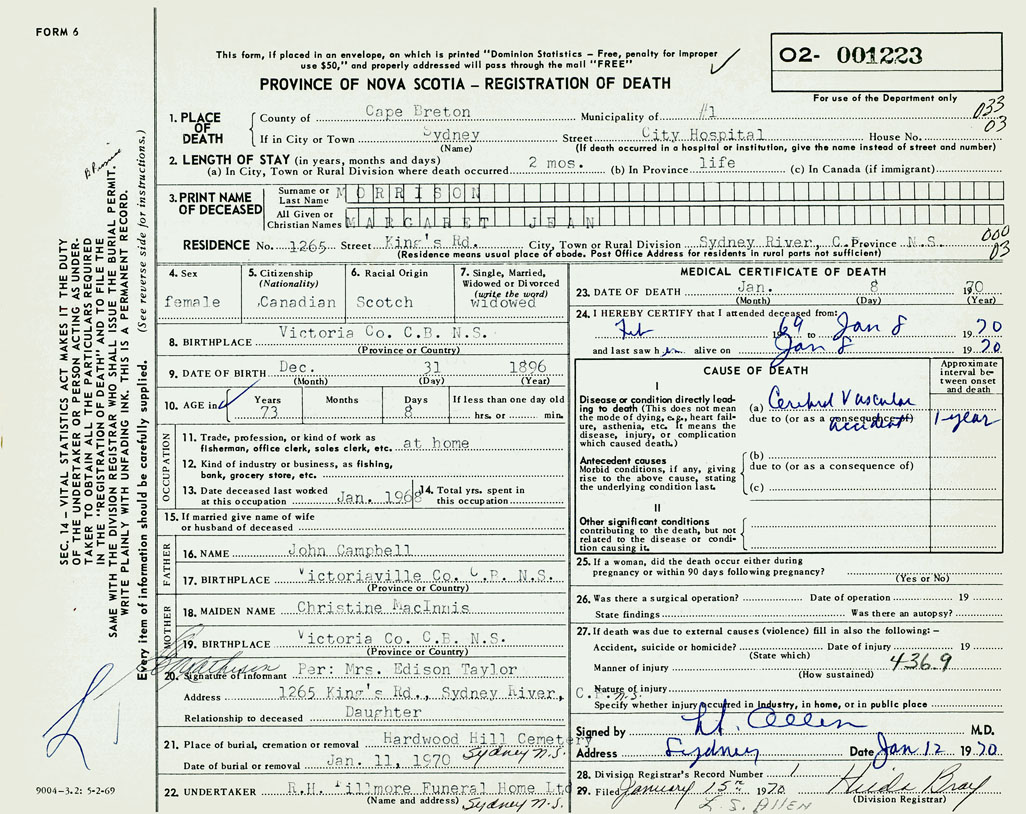 FORM 6
This form, if placed in an envelope, on which is printed "Dominion Statistics – Free, penalty for improper
use $50," and properly addressed will pass through the mail "FREE"
PROVINCE OF NOVA SCOTIA – REGISTRATION OF DEATH
02- 001223
For use of the Department only
033
03
1. PLACE OF DEATH
County of Cape Breton Municipality of #1
If in City or Town Sydney Street City Hospital House No.
(Name) (If death occurred in a hospital or institution, give the name instead of street and number)
2. LENGTH OF STAY (in years, months and days)
(a) In City, Town or Rural Division where death occurred 2 mos. (b) In Province life (c) In Canada (if immigrant)
3. PRINT NAME OF DECEASED
Surname or Last Name MORRISON
All Given or Christian Names MARGARET JEAN
000
03
RESIDENCE No. 1265 Street King's Rd. City, Town or Rural Division Sydney River, C. Province N.S.
(Residence means usual place of abode. Post Office Address for residents in rural parts not sufficient)
4. Sex
female
5. Citizenship
(Nationality)
Canadian
6. Racial Origin
Scotch
7. Single, Married,
Widowed or Divorced
(write the word)
widowed
8. BIRTHPLACE Victoria Co. C.B. N.S.
(Province or Country)
9. DATE OF BIRTH Dec. 31 1896
(Month) (Day) (Year)
10. AGE in Years 73 Months Days 8 If less than one day old
hrs. or min.
OCCUPATION
11. Trade, profession, or kind of work as
fisherman, office clerk, sales clerk, etc. at home
12. Kind of industry or business, as fishing,
bank, grocery store, etc.
13. Date deceased last worked
at this occupation Jan. 1968
14. Total yrs. spent in
this occupation
15. If married give name of wife
or husband of deceased
FATHER
16. NAME John Campbell
17. BIRTHPLACE Victoriaville Co. C.B. N.S.
(Province or Country)
MOTHER
18. MAIDEN NAME Christine MacInnis
19. BIRTHPLACE Victoria Co. C.B. N.S.
(Province or Country)
20. Signature of informant Per: Mrs. Edison Taylor
Address 1265 King's Rd., Sydney River, C.B. N.S.
Relationship to deceased Daughter
21. Place of burial, cremation or removal Hardwood Hill Cemetery
Date of burial or removal Jan. 11, 1970 Sydney N.S.
22. UNDERTAKER R.H. Fillmore Funeral Home Ltd
(Name and address) Sydney N.S.
MEDICAL CERTIFICATE OF DEATH
23. DATE OF DEATH Jan. 8 1970
(Month) (Day) (Year)
24. I HEREBY CERTIFY that I attended deceased from:
Feb 1969 to Jan 8 1970
and last saw her alive on Jan 8 1970
CAUSE OF DEATH
Approximate
interval be-
tween onset
and death
I
Disease or condition directly lead-
ing to death (This does not
mean the mode of dying, e.g., heart fail-
ure, asthenia, etc. It means the
disease, injury, or complication
which caused death.)
(a) Cerebral Vascular
due to (or as a consequence of)
accident
1-year
Antecedent causes
Morbid conditions, if any, giving
rise to the above cause, stating
the underlying condition last.
(b)
due to (or as a consequence of)
(c)
II
Other significant conditions
contributing to the death, but not
related to the disease or condi-
tion causing it.
25. If a woman, did the death occur either during
pregnancy or within 90 days following pregnancy?
(Yes or No)
26. Was there a surgical operation? Date of operation 19
State findings Was there an autopsy?
27. If death was due to external causes (violence) fill in also the following: –
Accident, suicide or homicide? Date of injury 19
(State which)
Manner of injury 436.9
(How sustained)
Nature of injury
Specify whether injury occurred in industry, in home, or in public place
Signed by Allen M.D.
Address Sydney Date Jan 12 1970
28. Division Registrar's Record Number 1
29. Filed January 15th 1970
(Division Registrar)
L. S. ALLEN
SEC. 14 – VITAL STATISTICS ACT MAKES IT THE DUTY
OF THE UNDERTAKER OR PERSON ACTING AS UNDER-
TAKER TO OBTAIN ALL THE PARTICULARS REQUIRED
IN THE "REGISTRATION OF DEATH" AND TO FILE THE
SAME WITH THE DIVISION REGISTRAR WHO SHALL ISSUE THE BURIAL PERMIT.
WRITE PLAINLY WITH UNFADING INK. THIS IS A PERMANENT RECORD.
Every item of information should be carefully supplied. (See reverse side for instructions.)
9004–3.2: 5-2-69